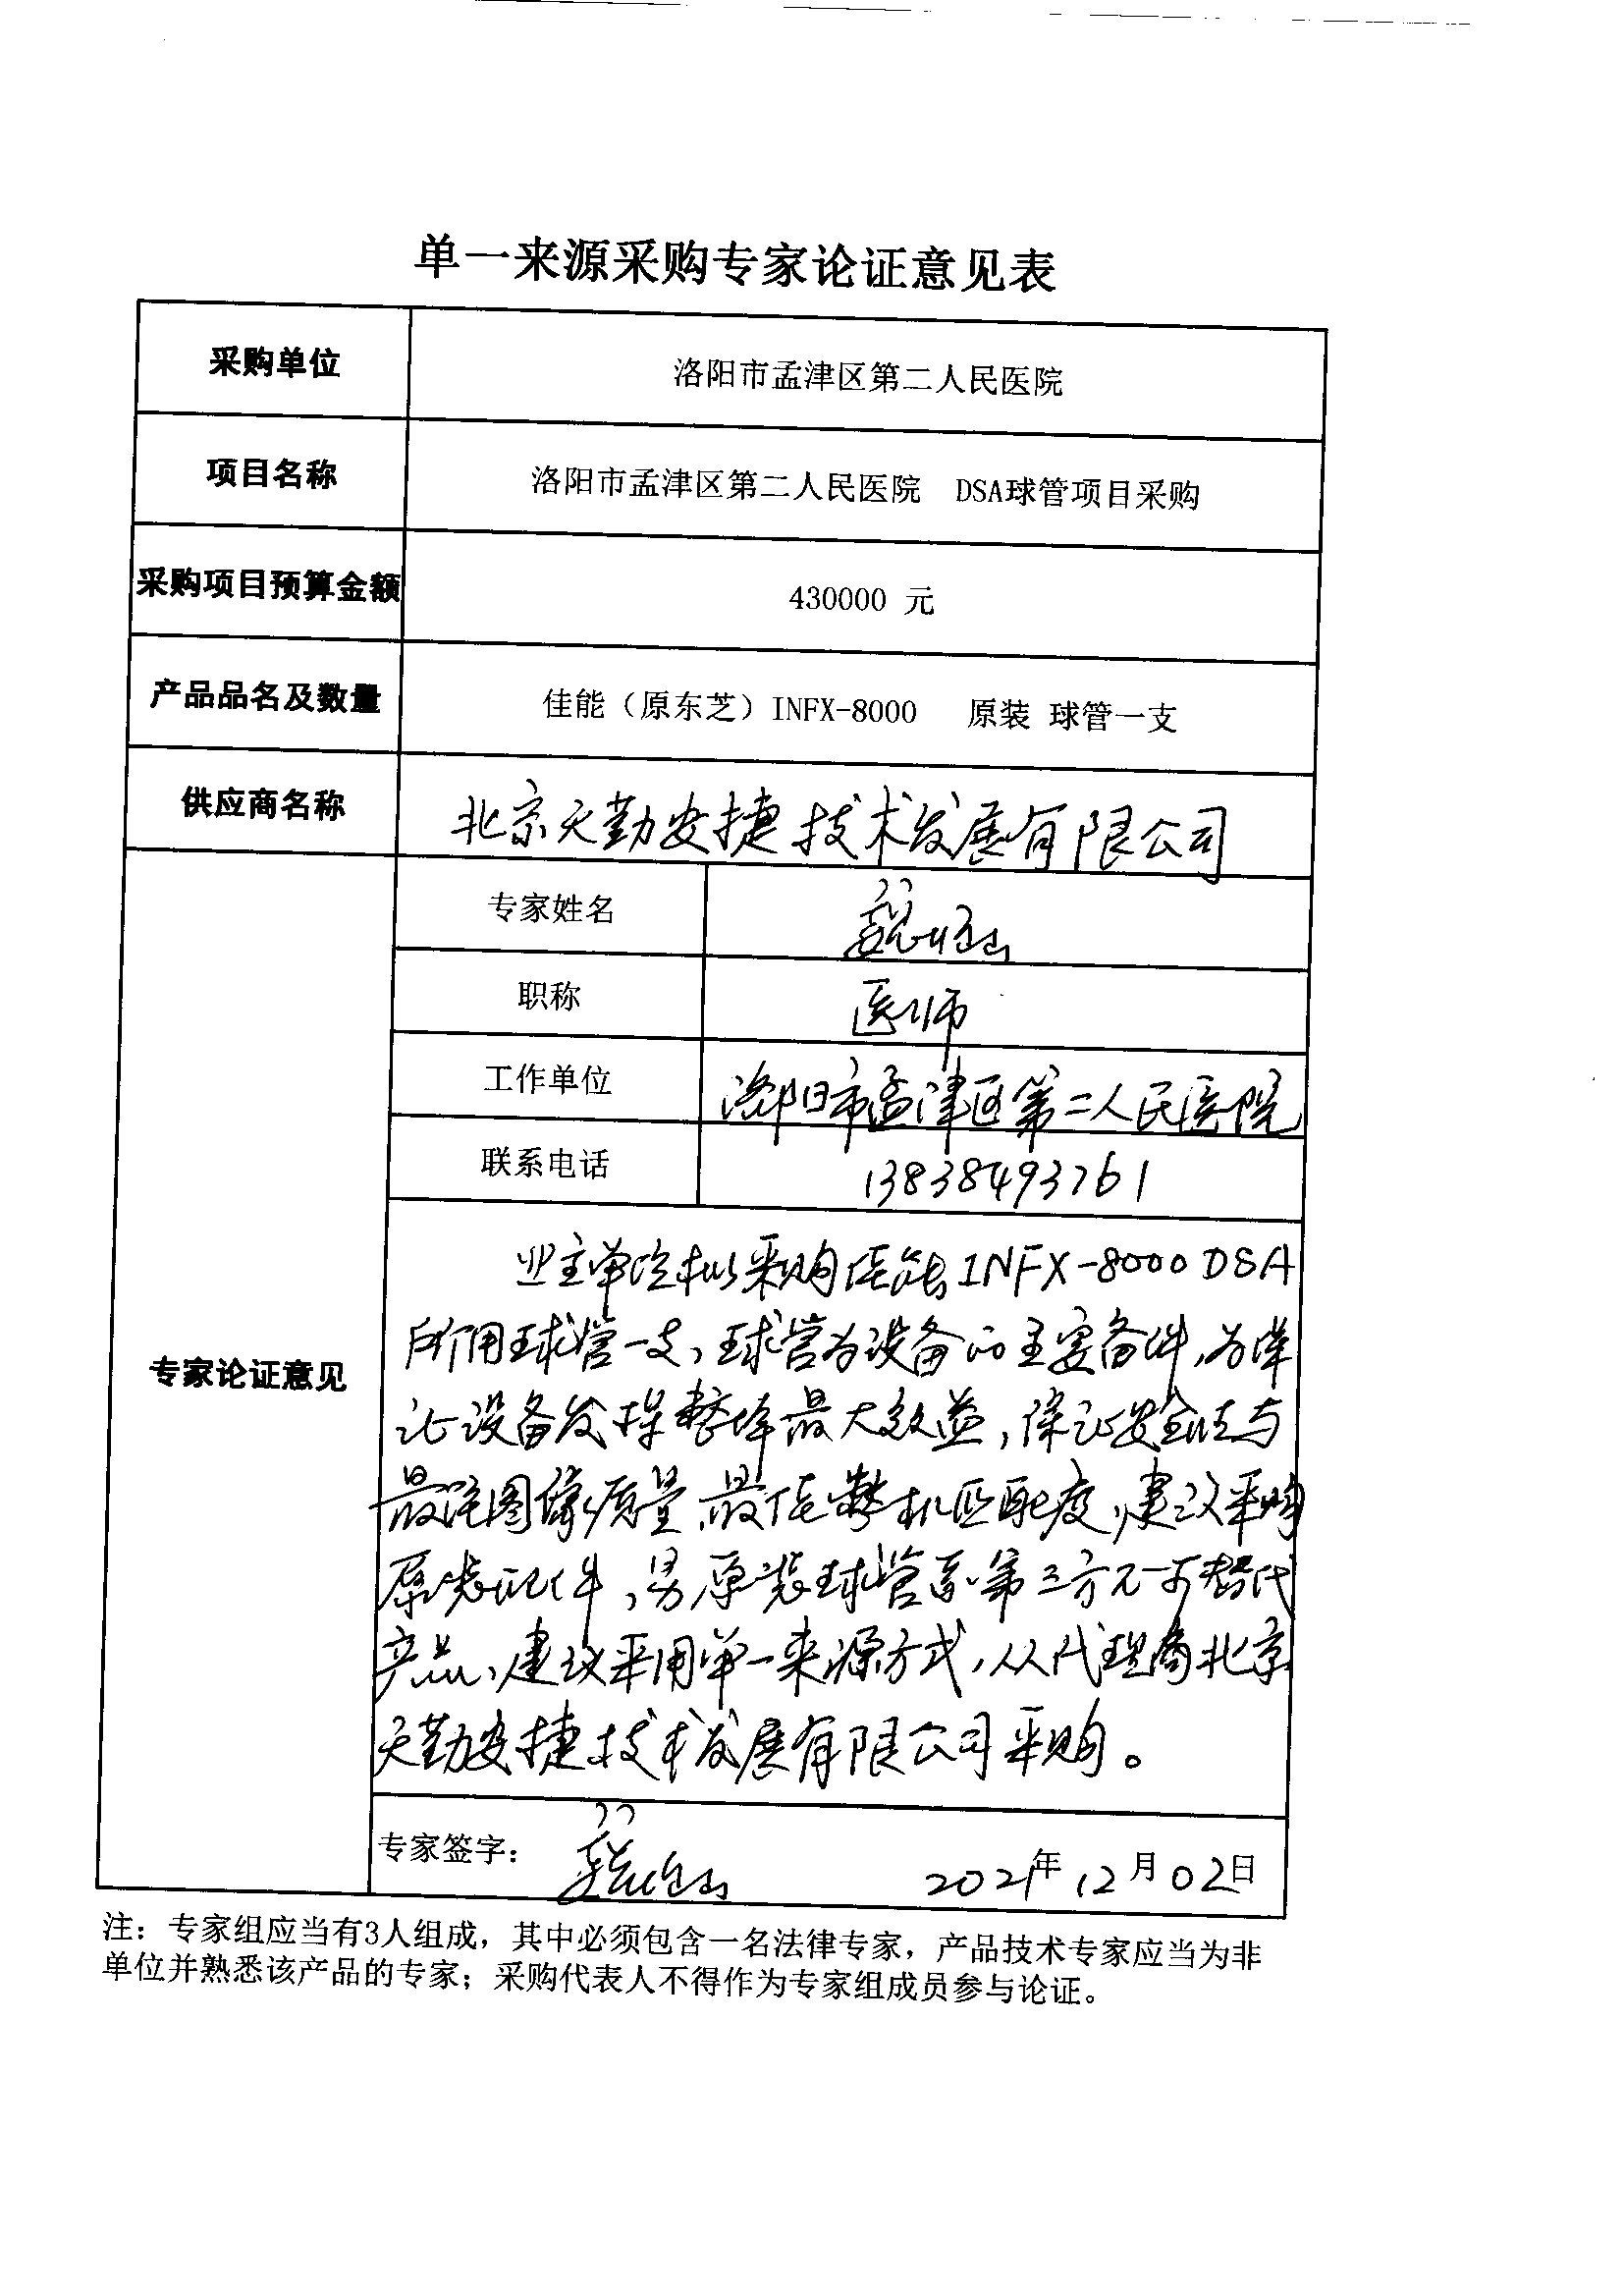 单一来源采购专家论证意见表
采购单位 洛阳市孟津区第二人民医院
项目名称 洛阳市孟津区第二人民医院 DSA球管项目采购
采购项目预算金额 430000 元
产品品名及数量 佳能（原东芝）INFX-8000 原装 球管一支
供应商名称 北京天勤安捷技术发展有限公司
专家姓名
职称 医师
工作单位 洛阳市孟津区第二人民医院
联系电话 13838493761
专家论证意见
业主单位拟采购佳能INFX-8000 DSA
所用球管一支，球管为设备的主要备件，为保
证设备发挥整体最大效益，保证安全性与
最佳图像质量、最佳整机匹配度，建议采购
原装配件，另原装球管系第三方无可替代
产品，建议采用单一来源方式，从代理商北京
天勤安捷技术发展有限公司采购。
专家签字： 2021年12月02日
注：专家组应当有3人组成，其中必须包含一名法律专家，产品技术专家应当为非
单位并熟悉该产品的专家；采购代表人不得作为专家组成员参与论证。